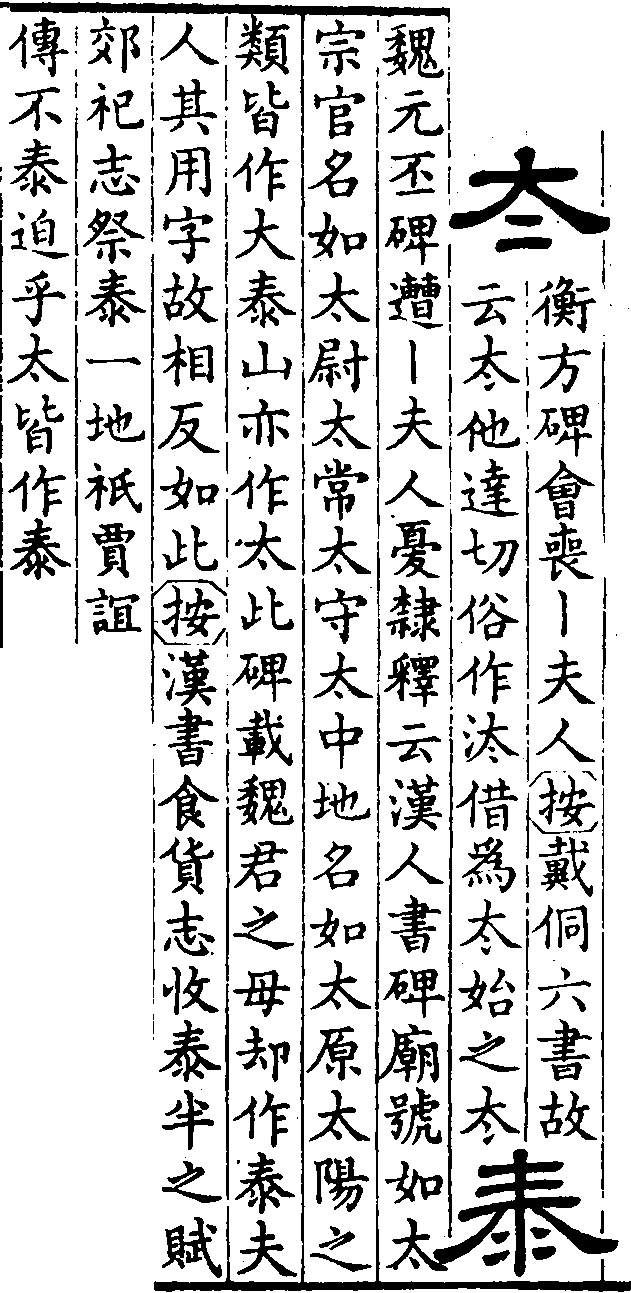 夳
衡方碑會喪丨夫人按戴侗六書故
云夳他達切俗作汰借爲夳始之夳
泰
魏元丕碑遭丨夫人憂隸釋云漢人書碑廟號如太
宗官名如太尉太常太守太中地名如太原太陽之
類皆作大泰山亦作太此碑載魏君之母却作泰夫
人其用字故相反如此按漢書食貨志收泰半之賦
郊祀志祭泰一地祇賈誼
傳不泰迫乎太皆作泰